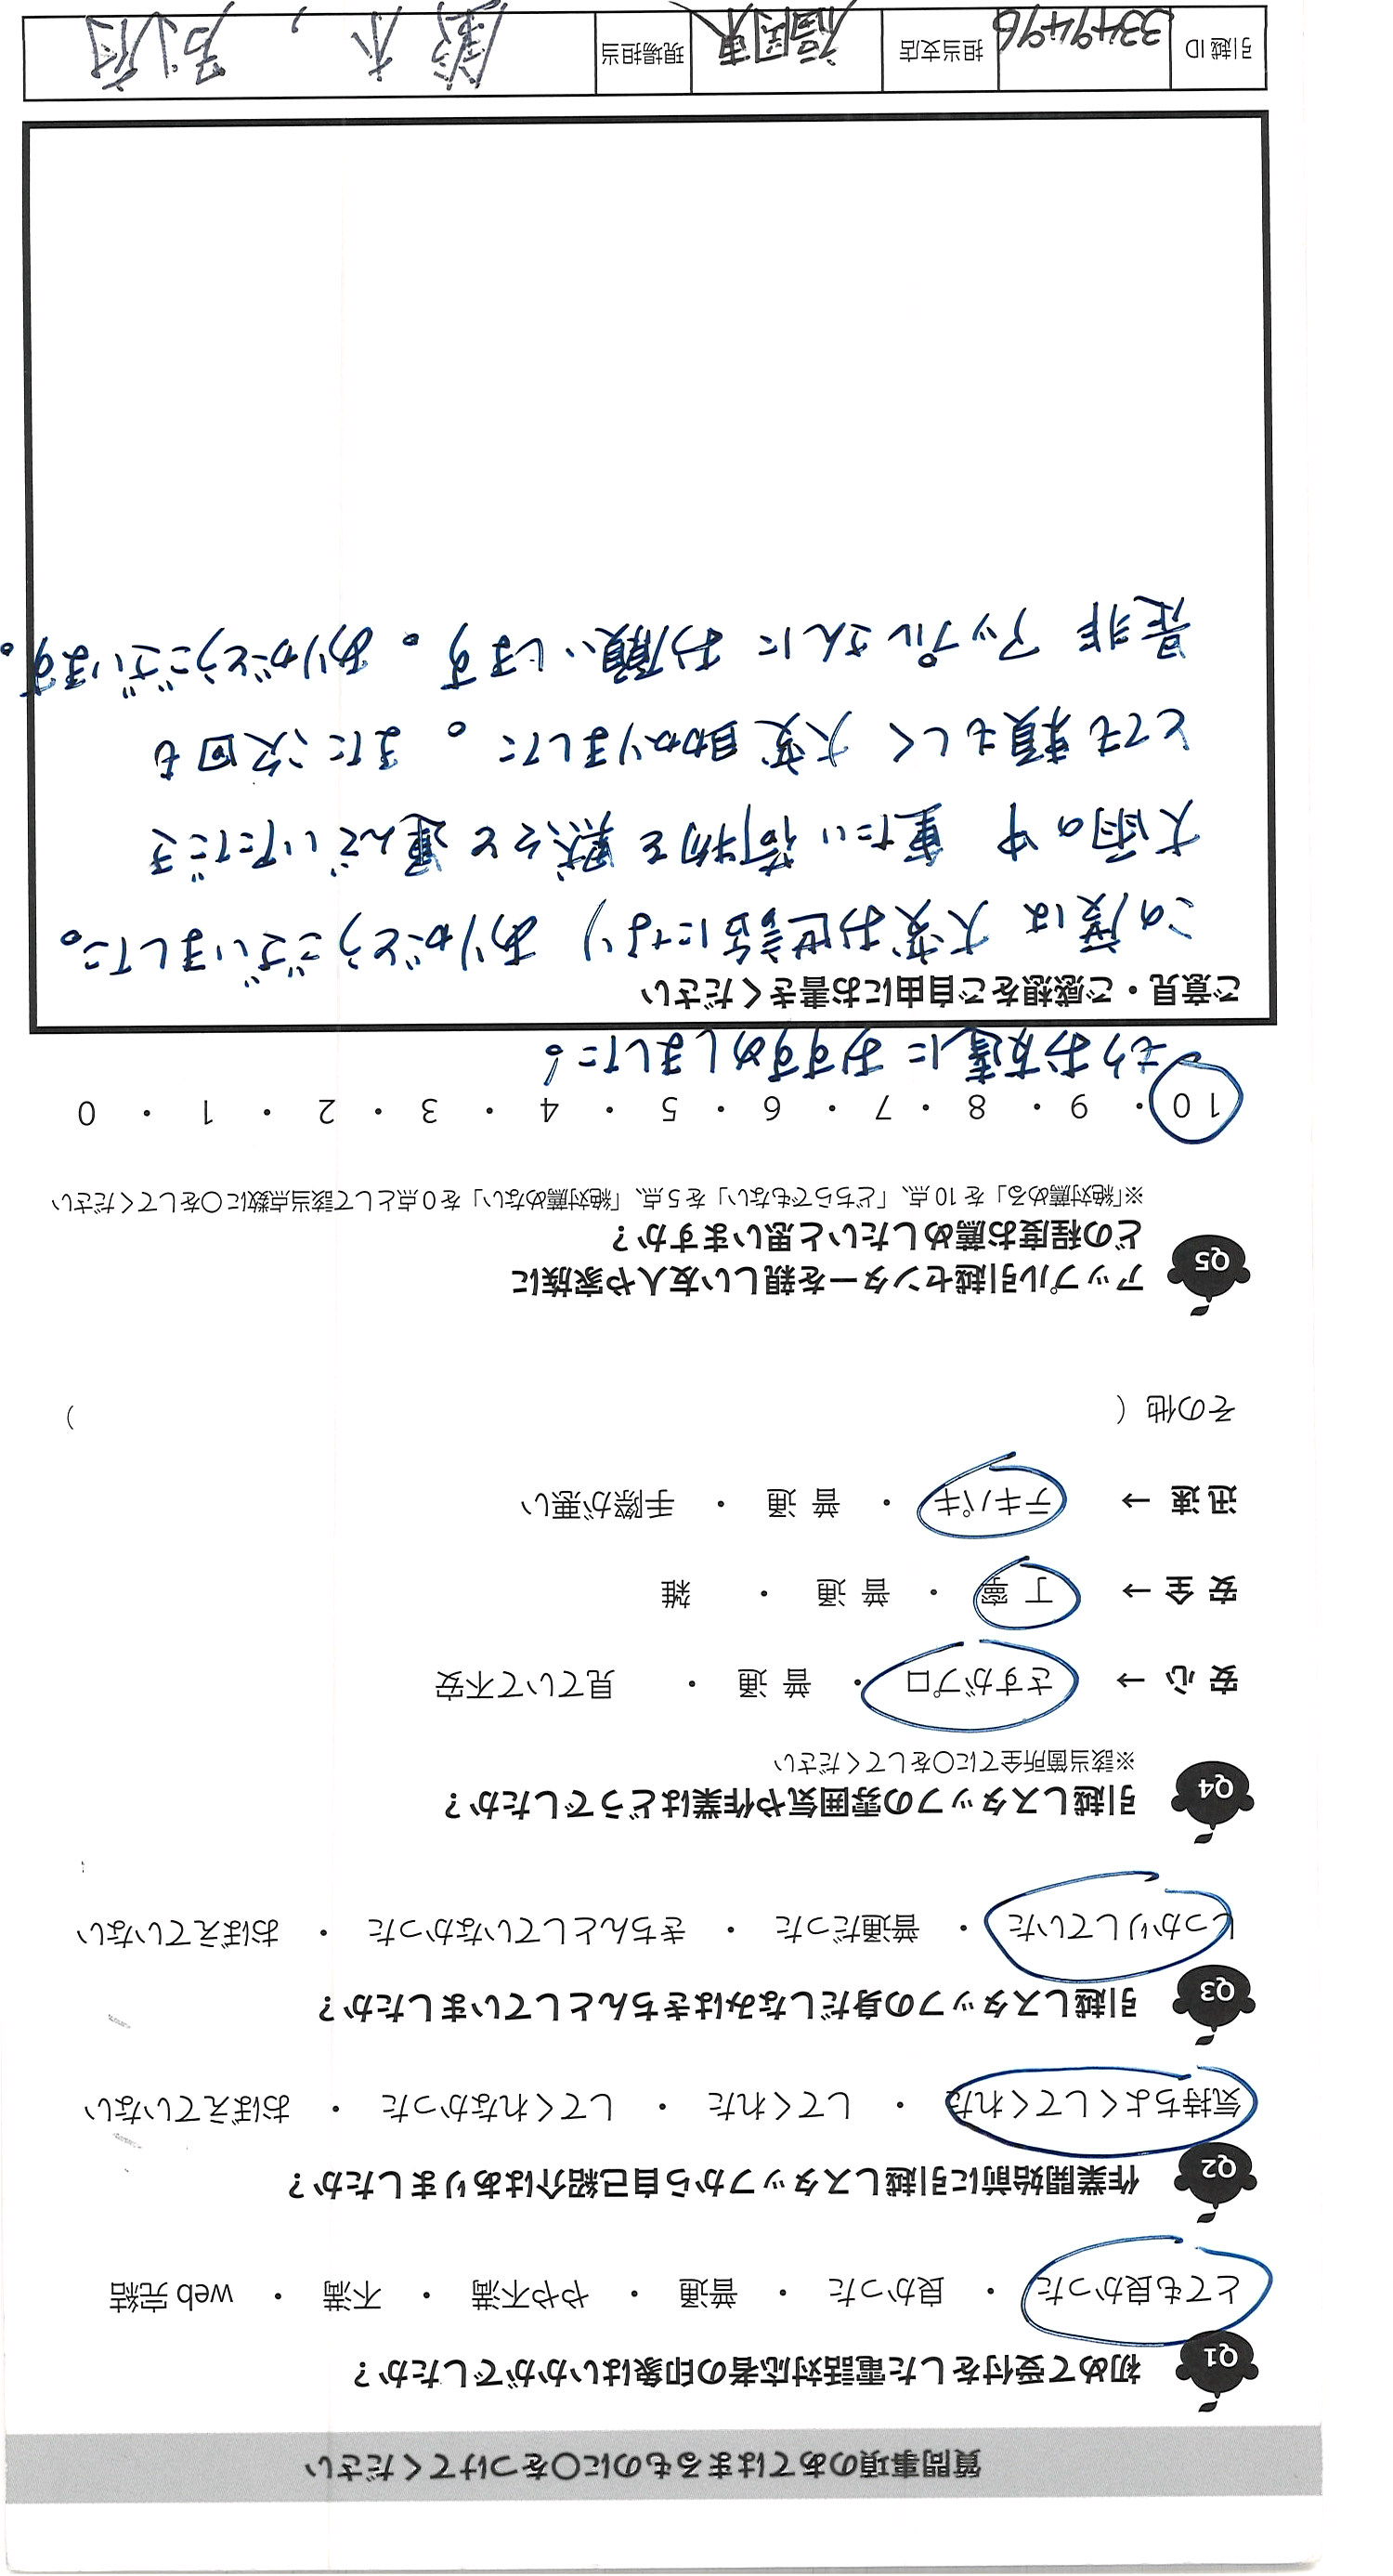 質問事項のあてはまるものに〇をつけてください
Q1 初めて受付をした電話対応者の印象はいかがでしたか？
とても良かった ・ 良かった ・ 普通 ・ やや不満 ・ 不満 ・ web 完結
Q2 作業開始前に引越しスタッフから自己紹介はありましたか？
気持ちよくしてくれた ・ してくれた ・ してくれなかった ・ おぼえていない
Q3 引越しスタッフの身だしなみはきちんとしていましたか？
しっかりしていた ・ 普通だった ・ きちんとしていなかった ・ おぼえていない
Q4 引越しスタッフの雰囲気や作業はどうでしたか？
※該当箇所全てに〇をしてください
安心 → さすがプロ ・ 普通 ・ 見ていて不安
安全 → 丁寧 ・ 普通 ・ 雑
迅速 → テキパキ ・ 普通 ・ 手際が悪い
その他（ ）
Q5 アップル引越センターを親しい友人や家族に
どの程度お薦めしたいと思いますか？
※「絶対薦める」を 10 点、「どちらでもない」を 5 点、「絶対薦めない」を 0 点として該当点数に〇をしてください
10 ・ 9 ・ 8 ・ 7 ・ 6 ・ 5 ・ 4 ・ 3 ・ 2 ・ 1 ・ 0
もうお友達におすすめしました!
ご意見・ご感想をご自由にお書きください
この度は 大変お世話になり ありがとうございました。
大雨の中 重たい荷物を黙々と運んでいただき
とても頼もしく 大変助かりました。また次回も
是非 アップルさんに お願いします。ありがとうございます。
引越 ID 33494496 担当支店 福岡東 現場担当